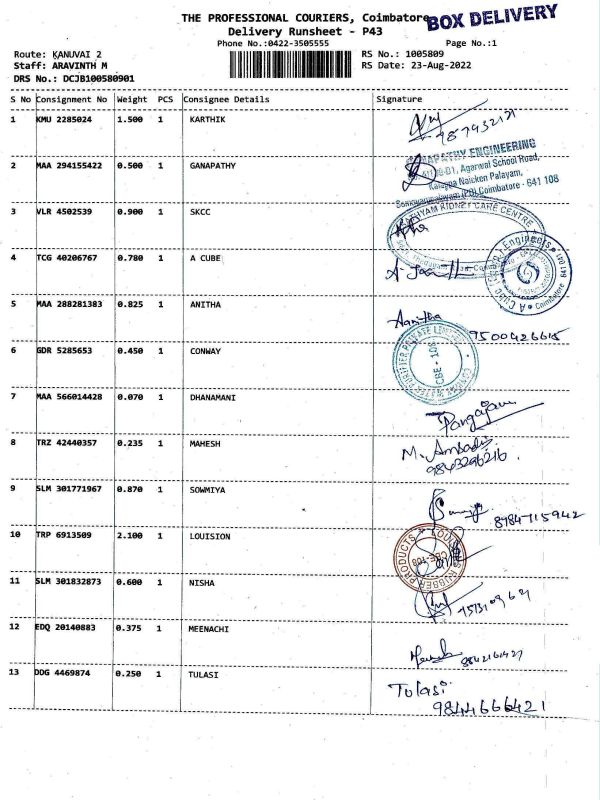 THE PROFESSIONAL COURIERS, Coimbatore
BOX DELIVERY
Delivery Runsheet - P43
Phone No.:0422-3505555
Page No.:1
Route: KANUVAI 2
RS No.: 1005809
Staff: ARAVINTH M
RS Date: 23-Aug-2022
DRS No.: DCJB100580901
S No Consignment No Weight PCS Consignee Details Signature
1 KMU 2285024 1.500 1 KARTHIK
2 MAA 294155422 0.500 1 GANAPATHY
GANAPATHY ENGINEERING
Agarwal School Road,
Naicken Palayam,
Coimbatore - 641 108
3 VLR 4502539 0.900 1 SKCC
KIDNEY CARE CENTRE
4 TCG 40206767 0.780 1 A CUBE
5 MAA 288281383 0.825 1 ANITHA
Aanitha
9500426615
6 GDR 5285653 0.450 1 CONWAY
7 MAA 566014428 0.070 1 DHANAMANI
8 TRZ 42440357 0.235 1 MAHESH
9843296216
9 SLM 301771967 0.870 1 SOWMIYA
8784715942
10 TRP 6913509 2.100 1 LOUISION
RUBBER PRODUCTS
11 SLM 301832873 0.600 1 NISHA
12 EDQ 20140883 0.375 1 MEENACHI
13 DDG 4469874 0.250 1 TULASI
Tulasi
9844666421